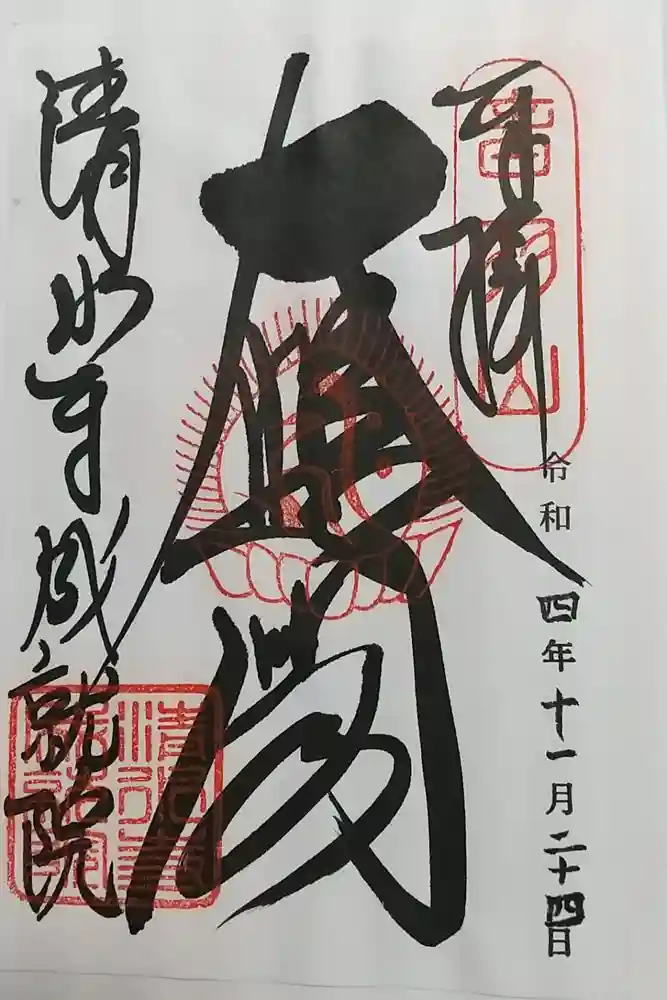 奉拝
音羽山
令和 四年十一月二十四日
清水寺成就院
清水寺
成就院